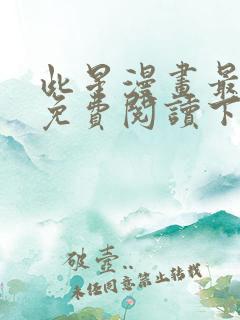 些星漫畫最
免費閱讀下
破壹..
未任同意禁止转载